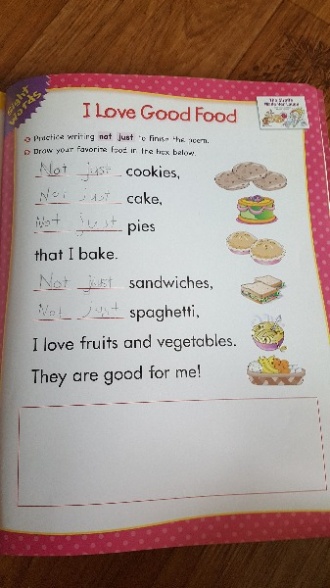 Sight Words
I Love Good Food
Practice writing not just to finish the poem.
Draw your favorite food in the box below.
Not just cookies,
Not just cake,
Not just pies
that I bake.
Not just sandwiches,
Not just spaghetti,
I love fruits and vegetables.
They are good for me!